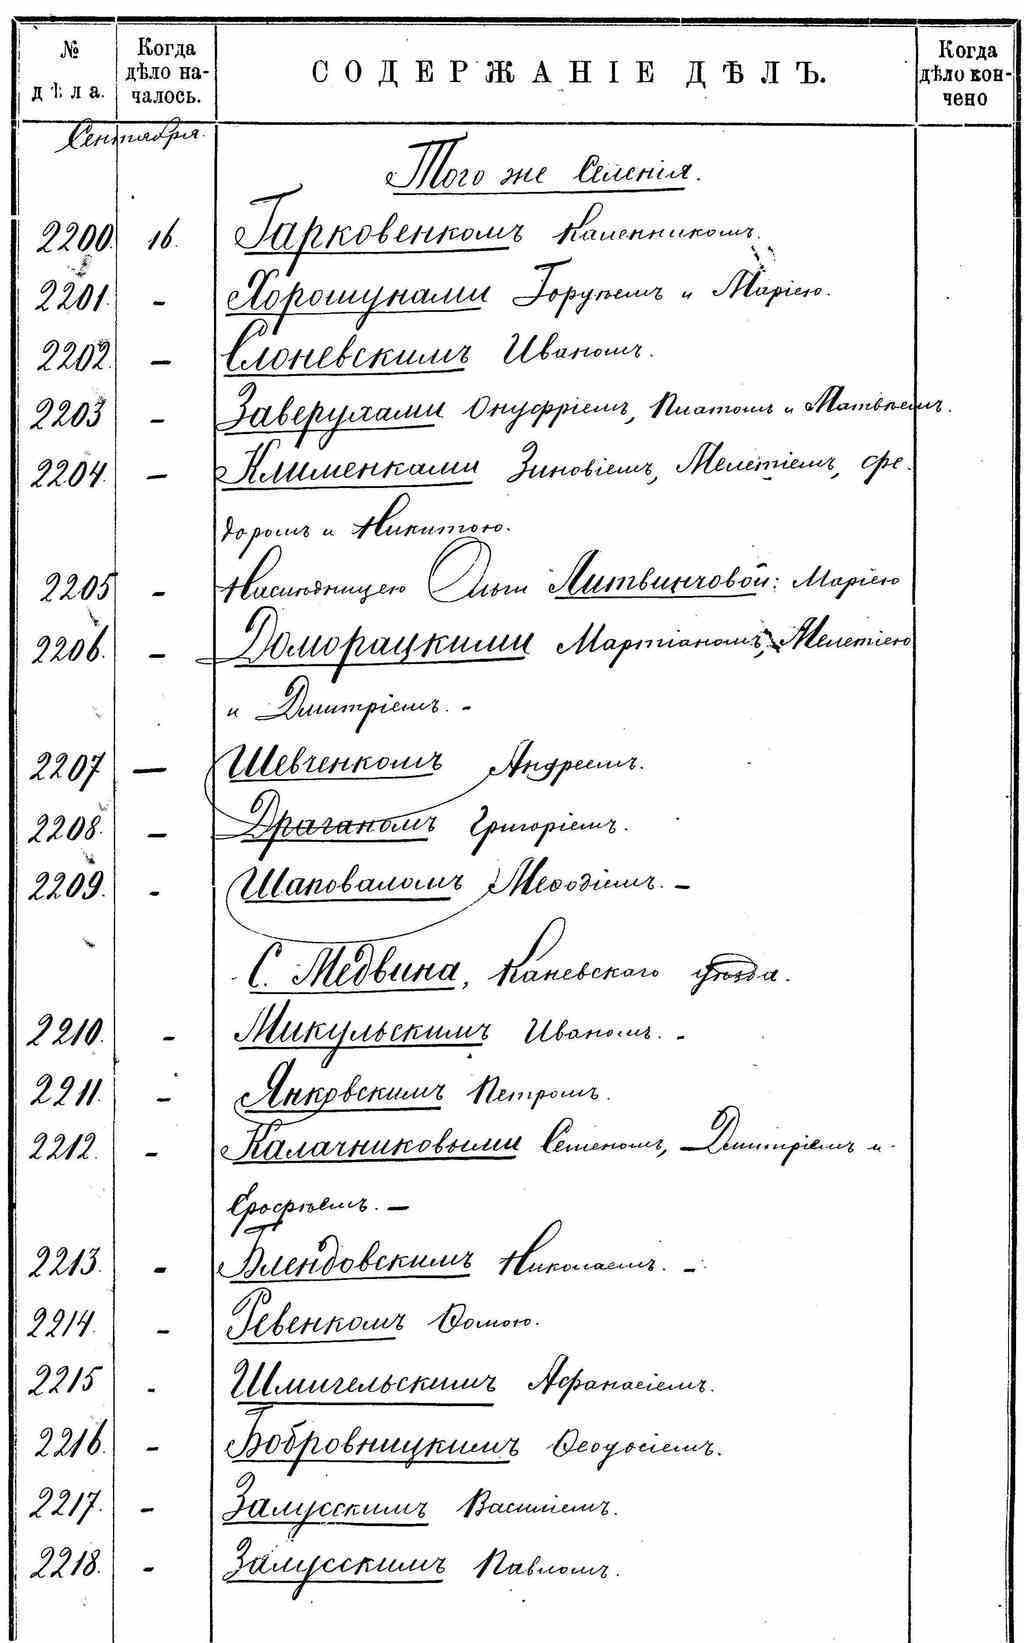 № дѣла. Когда дѣло началось. СОДЕРЖАНІЕ ДѢЛЪ. Когда дѣло кончено
Сентября.
Того же Селенія.
2200. 16. Гарковенкомъ Каленникомъ.
2201. - Хорошунами и Маріею.
2202. - Слоневскимъ Иваномъ.
2203 - Заверухами Онуфріемъ, Платономъ и Матвѣемъ.
2204. - Клименками Зиновіемъ, Мелетіемъ, Фе-
доромъ и Никитою.
2205 - Наслѣдницею Ольги Литвинчовой: Маріею
2206. - Доморацкими Мартіаномъ, Мелетіею
и Дмитріемъ. -
2207 - Шевченкомъ Андреемъ.
2208. - Драганомъ Григоріемъ.
2209. - Шаповаломъ Меѳодіемъ. -
С. Медвина, Каневскаго уѣзда.
2210. - Микульскимъ Иваномъ. -
2211. - Янковскимъ Петромъ.
2212. - Калачниковыми Семеномъ, Дмитріемъ и
Ерофѣемъ. -
2213. - Блендовскимъ Николаемъ. -
2214. - Ревенкомъ Ѳомою.
2215 - Шмигельскимъ Афанасіемъ.
2216. - Бобровницкимъ Ѳеодосіемъ.
2217. - Залусскимъ Василіемъ.
2218. - Залусскимъ Павломъ.